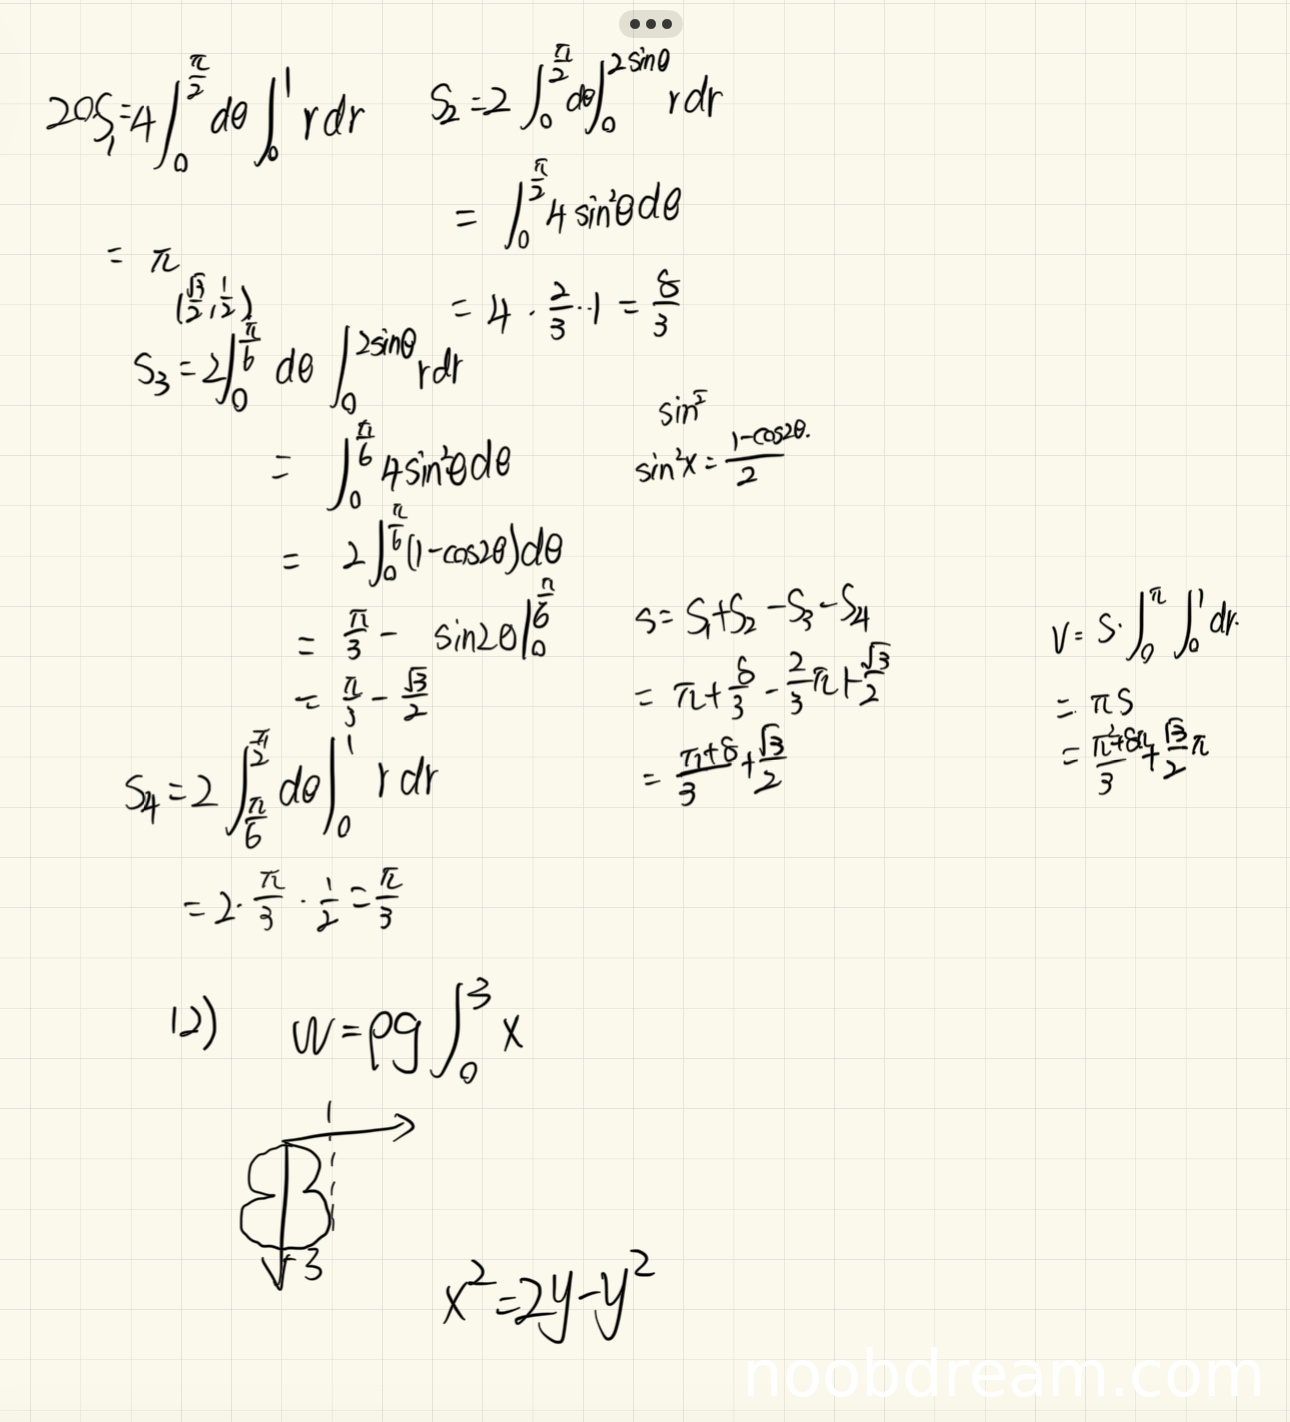 20 S₁=4∫₀^{π/2} dθ ∫₀^1 r dr
= π
S₂=2∫₀^{π/2} dθ ∫₀^{2sinθ} r dr
= ∫₀^{π/2} 4 sin²θ dθ
= 4 · 2/3 · · 1 = 8/3
(√3/2, 1/2)
S₃=2∫₀^{π/6} dθ ∫₀^{2sinθ} r dr
= ∫₀^{π/6} 4 sin²θ dθ
= 2∫₀^{π/6} (1-cos2θ) dθ
= π/3 - sin2θ|₀^{π/6}
= π/3 - √3/2
sin²
sin²x = (1-cos2θ)/2.
S₄=2∫_{π/6}^{π/2} dθ ∫₀^1 r dr
=2·π/3·1/2=π/3
S= S₁+S₂-S₃-S₄
= π+8/3-2/3π+√3/2
= (π+8)/3+√3/2
V= S·∫₀^π ∫₀^1 dr.
= πS
= (π²+8π)/3+√3/2 π
12) W=ρg∫₀^3 x
1
3
x²=2y-y²
noobdream.com